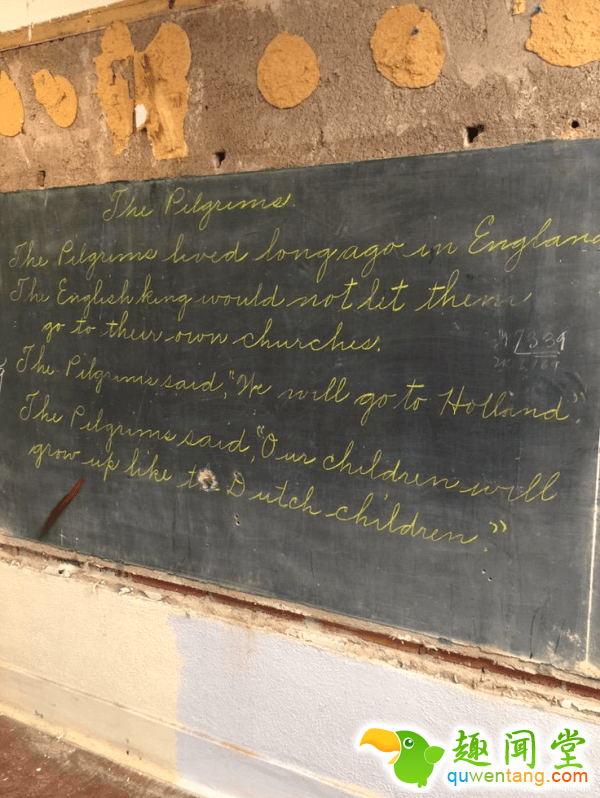 The Pilgrims.
The Pilgrims lived long ago in England
The English king would not let them
go to their own churches.
The Pilgrims said, "We will go to Holland."
The Pilgrims said, "Our children will
grow up like the Dutch children."
7339
趣闻堂
quwentang.com